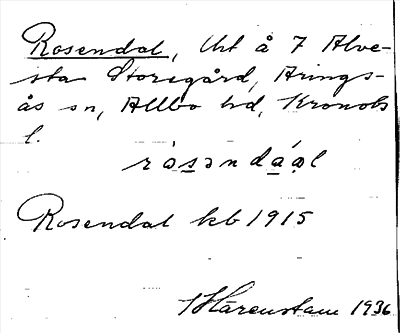 Rosendal, Urt å 7 Alve-
sta Storegård, Arings-
ås sn, Allbo hd, Kronobs
l.
ròsəndáəl
Rosendal kb 1915
Hårenstam 1936